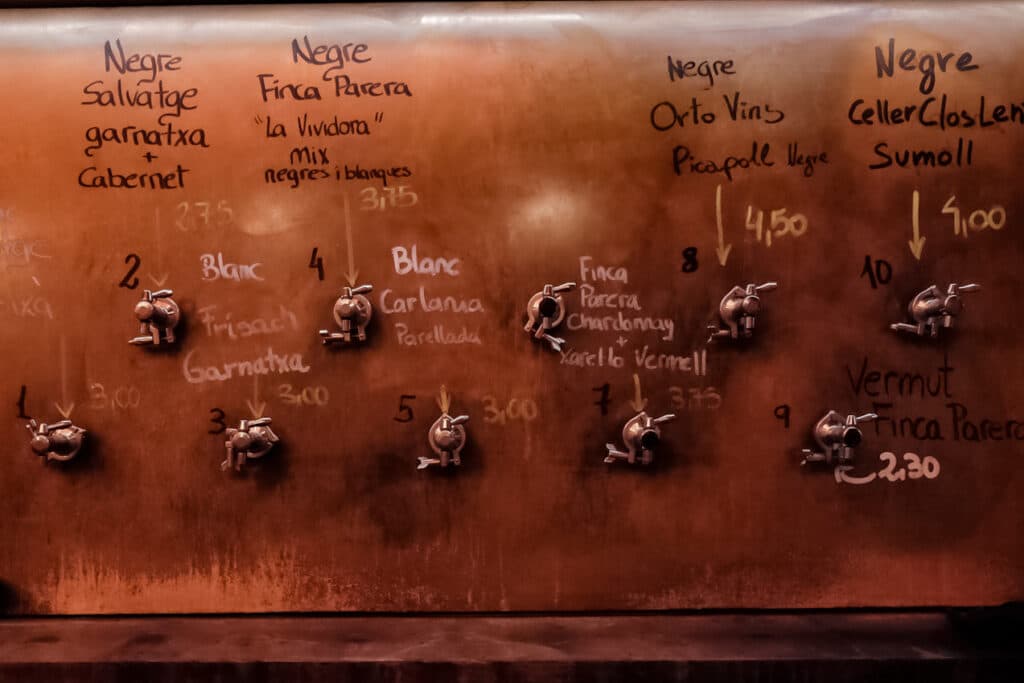 Negre
Salvatge
garnatxa
+
Cabernet
2,75
2
Negre
Finca Parera
"La Vividora"
Mix
negres i blanques
3,75
4
Negre
Orto Vins
Picapoll Negre
4,50
8
Negre
Celler Clos Len
Sumoll
4,00
10
1
3,00
Blanc
Frisach
Garnatxa
3,00
3
Blanc
Carlania
Parellada
3,00
5
Finca
Parera
Chardonnay
+
xarello Vermell
3,75
7
Vermut
Finca Parera
2,30
9